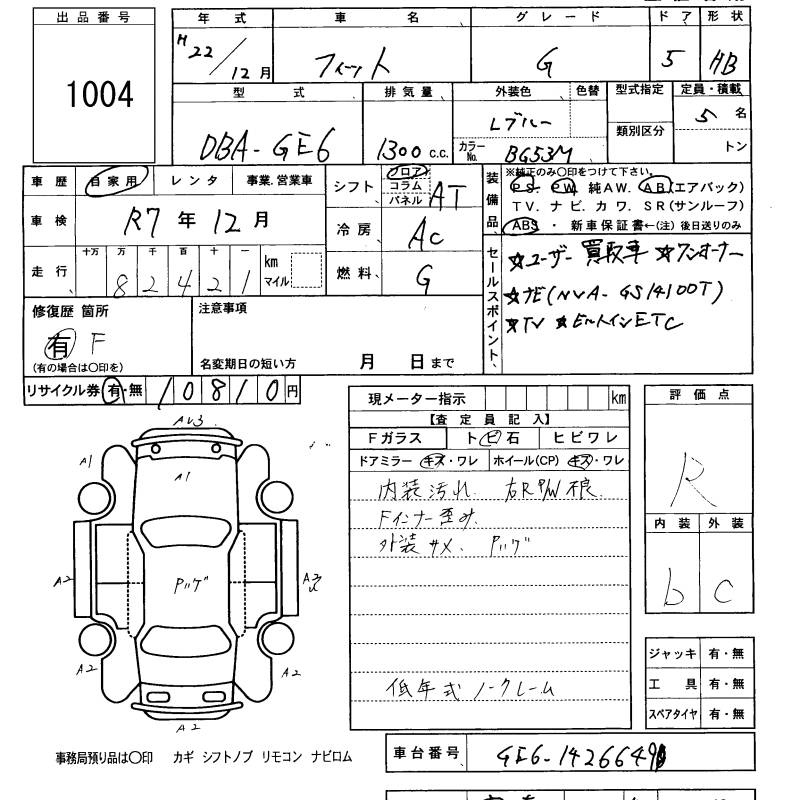 出品番号
1004
年式 車名 グレード ドア 形状
H22/12月 フィット G 5 HB
型式 排気量 外装色 色替 型式指定 定員・積載
DBA-GE6 1300c.c. Lブルー 5名
カラーNo. BG53M 類別区分 トン
車歴 自家用 レンタ 事業.営業車
車検 R7年12月
走行 十万 万 千 百 十 一 km マイル
82421
シフト フロア コラム パネル AT
冷房 AC
燃料 G
装備品 ※純正のみ〇印をつけて下さい。
PS PW 純AW. AB(エアバック)
TV. ナビ. カワ. SR(サンルーフ)
ABS ・ 新車保証書←(注)後日送りのみ
セールスポイント、
☆ユーザー買取車 ☆ワンオーナー
☆ナビ(NVA-GS1410DT)
☆TV ☆ビルトインETC
修復歴 箇所
有 F
(有の場合は〇印を)
注意事項
名変期日の短い方 月 日まで
リサイクル券 有・無 10810円
現メーター指示 km
【査定員記入】
Fガラス トビ石 ヒビワレ
ドアミラー キズ・ワレ ホイール(CP) キズ・ワレ
内装汚れ 右RP/W不良
Fインナー歪み
外装サメ、Pハゲ
低年式ノークレーム
評価点
R
内装 外装
b C
ジャッキ 有・無
工具 有・無
スペアタイヤ 有・無
AU3
A1
A1
A2
Pハゲ
A2
A2
A2
A2
事務局預り品は〇印 カギ シフトノブ リモコン ナビロム
車台番号 GE6-1426649